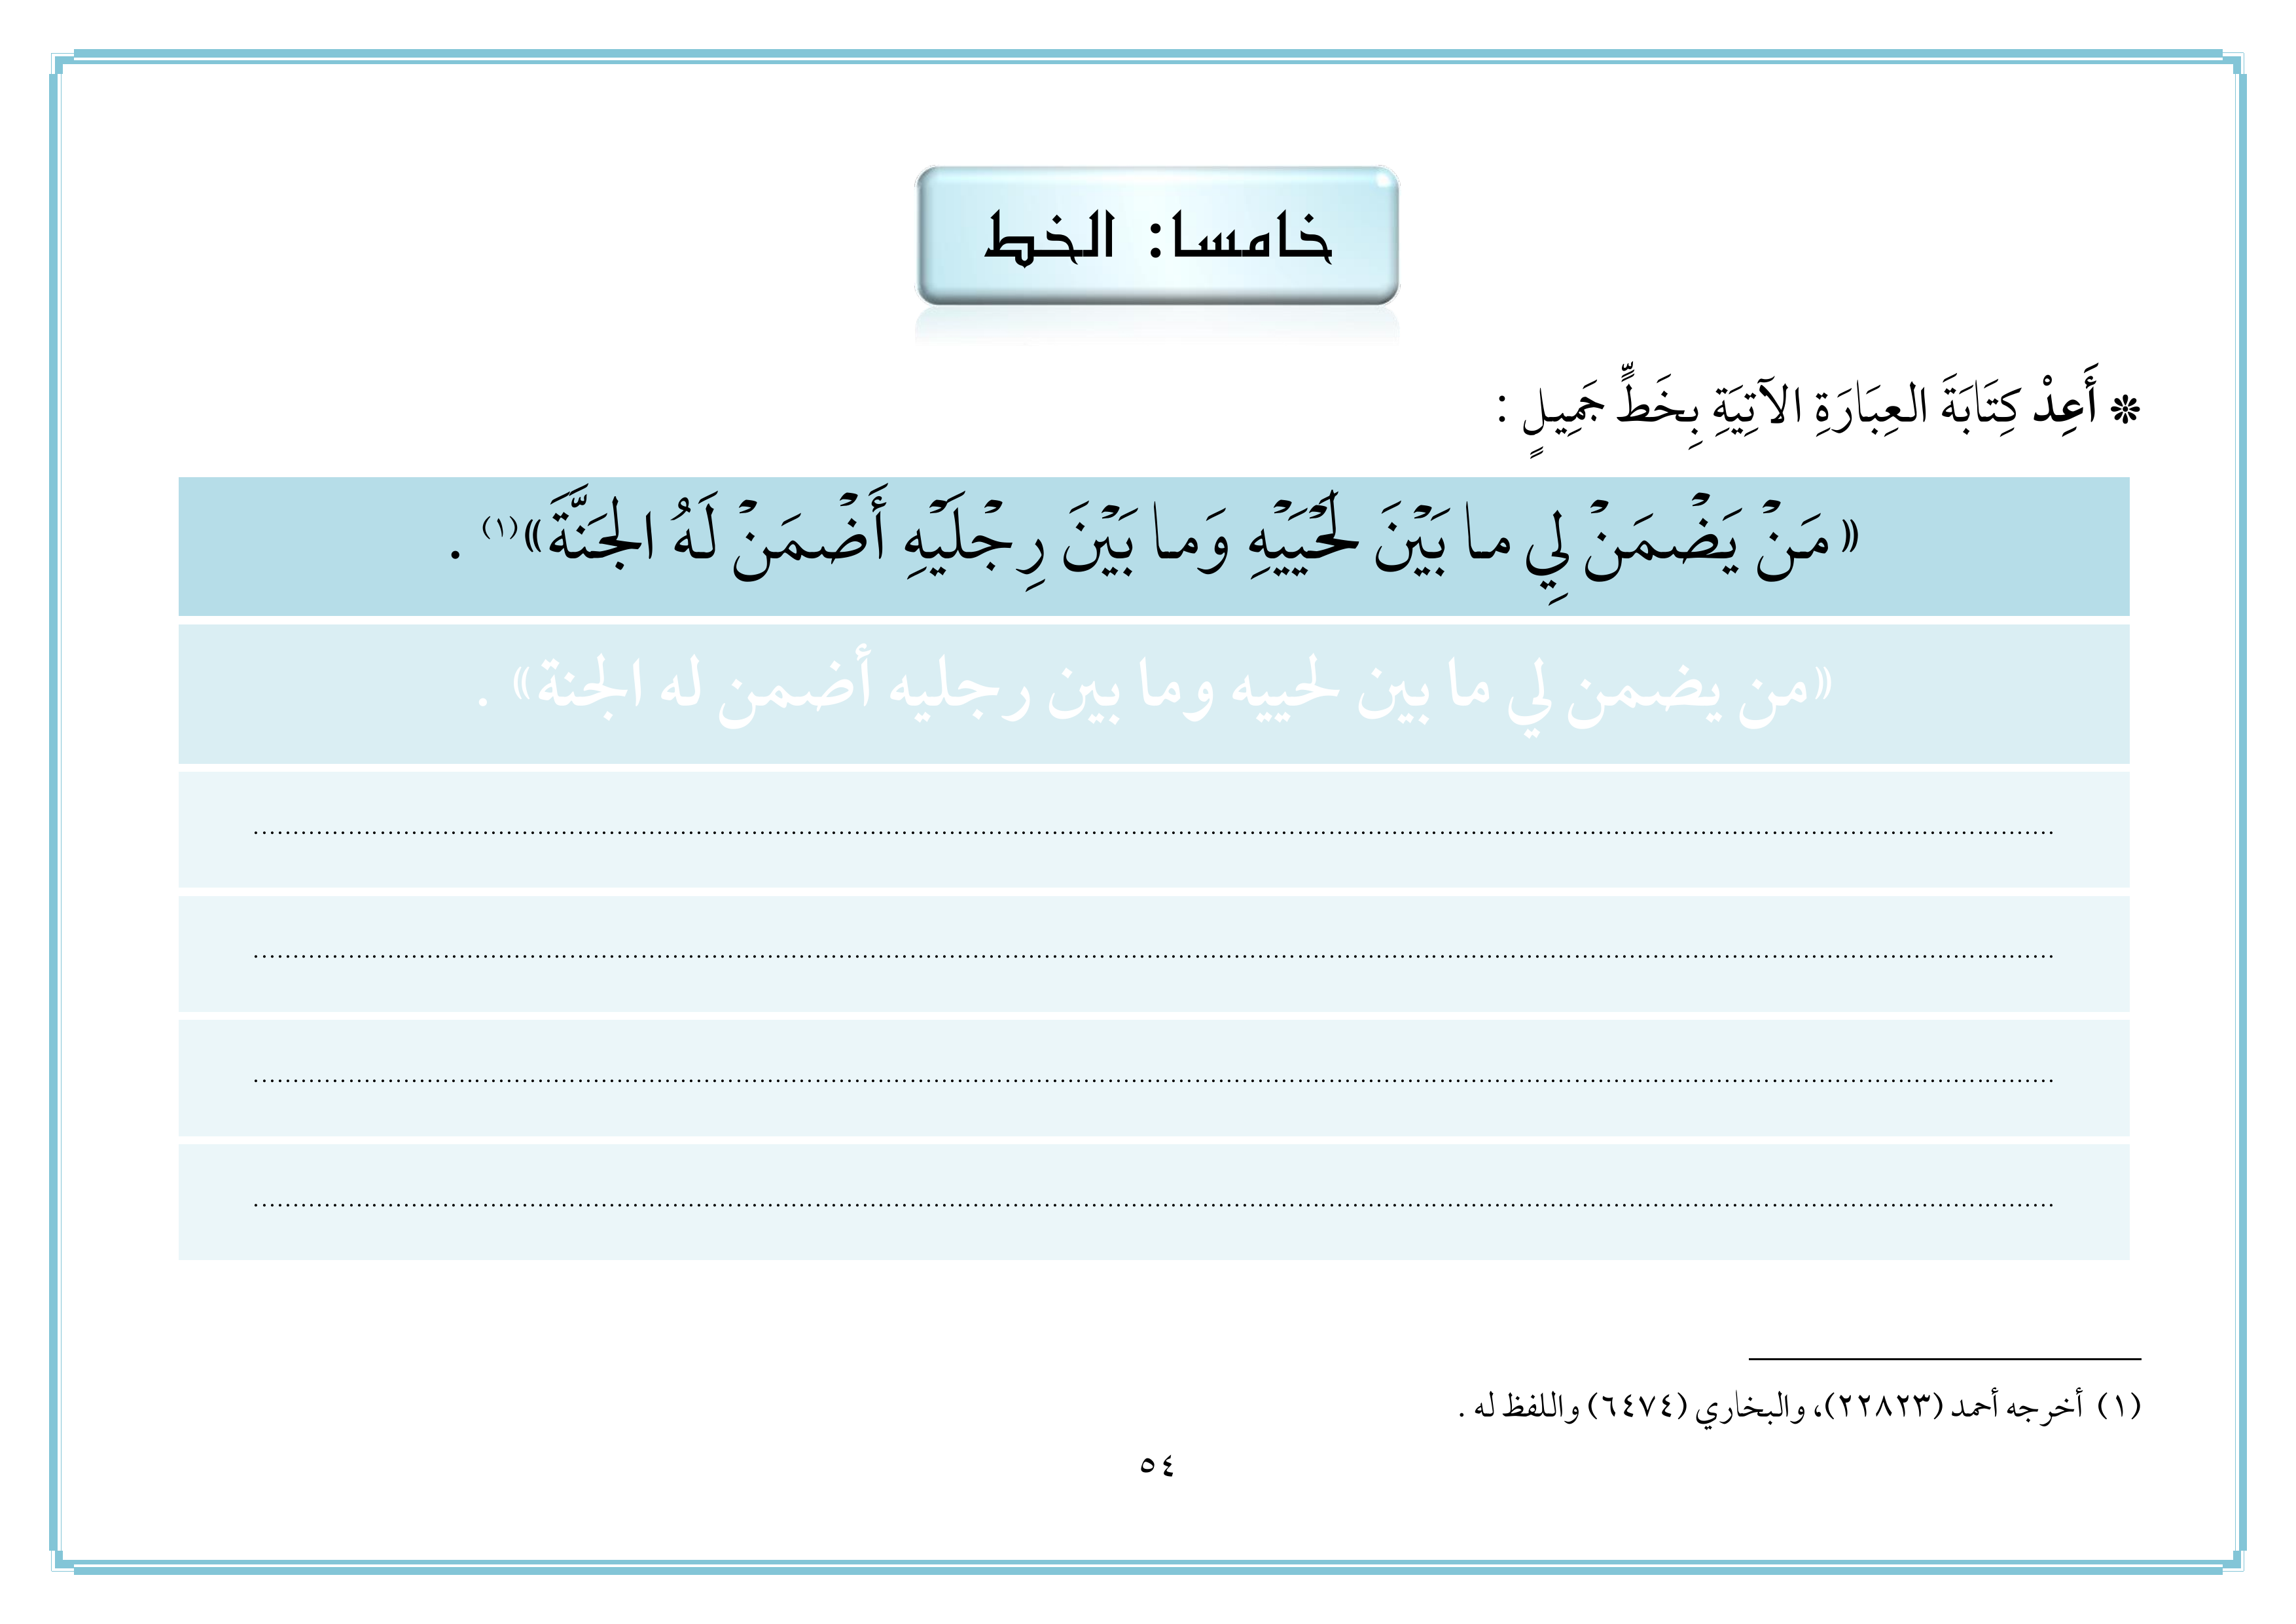 خامسا: الخط
❊ أَعِدْ كِتَابَةَ العِبَارَةِ الآتِيَةِ بِخَطٍّ جَمِيلٍ :
«مَنْ يَضْمَنْ لِي ما بَيْنَ لَحْيَيْهِ وَما بَيْنَ رِجْلَيْهِ أَضْمَنْ لَهُ الجَنَّةَ»(١) .
«من يضمن لي ما بين لحييه وما بين رجليه أضمن له الجنة» .
(١) أخرجه أحمد (٢٢٨٢٣)، والبخاري (٦٤٧٤) واللفظ له .
٥٤